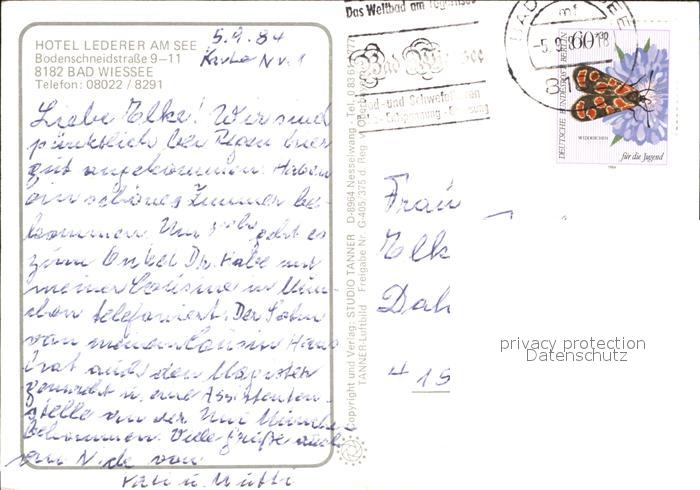 HOTEL LEDERER AM SEE
Bodenschneidstraße 9–11
8182 BAD WIESSEE
Telefon: 08022 / 8291
5.9.84
Karte Nr. 1
Liebe Elke! Wir sind
pünktlich bei Regen hier
gut angekommen. Haben
ein schönes Zimmer be-
kommen. Um geht es
zum Onkel Dr. Habe mit
meiner Cousine in Mün-
chen telefoniert. Der Sohn
von meinem Cousin Hans
hat auch den Magister
gemacht u. eine Assistenten-
stelle an der Uni München
bekommen. Viele Grüße auch
an N. de von
Vati u. Mutti
Copyright und Verlag: STUDIO TANNER D-8964 Nesselwang · Tel.
TANNER-Luftbild Freigabe Nr. G-405/375 d. Reg. v.
Das Weltbad am Tegernsee
Bad Wiessee
Jod- und Schwefelthermen
Entspannung
BAD WIESSEE
-5.9.84-18
DEUTSCHE BUNDESPOST BERLIN
60
WIDDERCHEN
für die Jugend
1984
Frau
Elk
Dah
15
privacy protection
Datenschutz